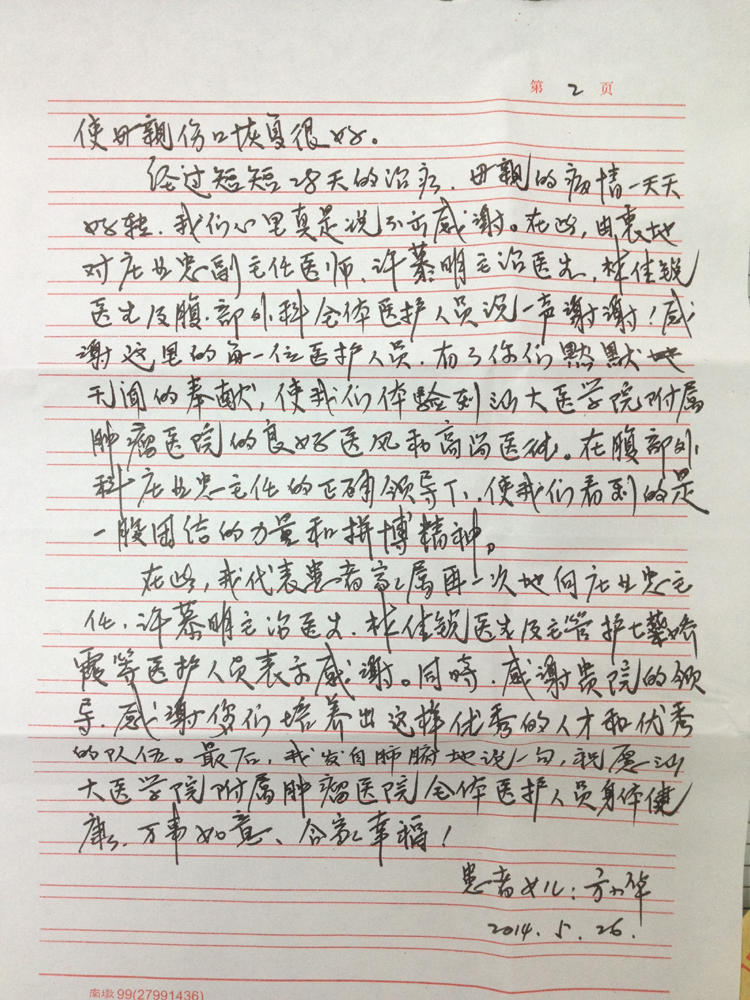 第 2 页
使母亲伤口恢复很好。
经过短短28天的治疗、母亲的病情一天天
好转、我们心里真是说不出感谢。在此,由衷地
对庄业忠副主任医师、许慕明主治医生、林佳锐
医生及腹部外科全体医护人员说一声谢谢!感
谢这里的每一位医护人员、有了你们默默地
无闻的奉献,使我们体验到汕大医学院附属
肿瘤医院的良好医风和高尚医德。在腹部外
科庄业忠主任的正确领导下、使我们看到的是
一股团结的力量和拼博精神。
在此,我代表患者家属再一次地向庄业忠主
任、许慕明主治医生、林佳锐医生及主管护士蔡娇
霞等医护人员表示感谢。同时、感谢贵院的领
导、感谢你们培养出这样优秀的人才和优秀
的队伍。最后,我发自肺腑地说一句,祝愿汕
大医学院附属肿瘤医院全体医护人员身体健
康、万事如意、合家幸福!
患者女儿:方小华
2014.5.26.
南墩99(27991436)